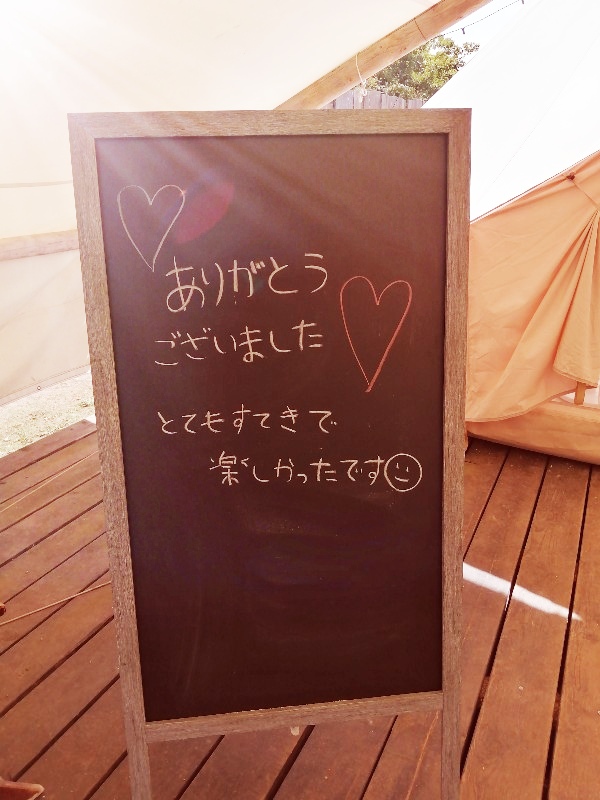 ありがとう
ございました
とてもすてきで
楽しかったです